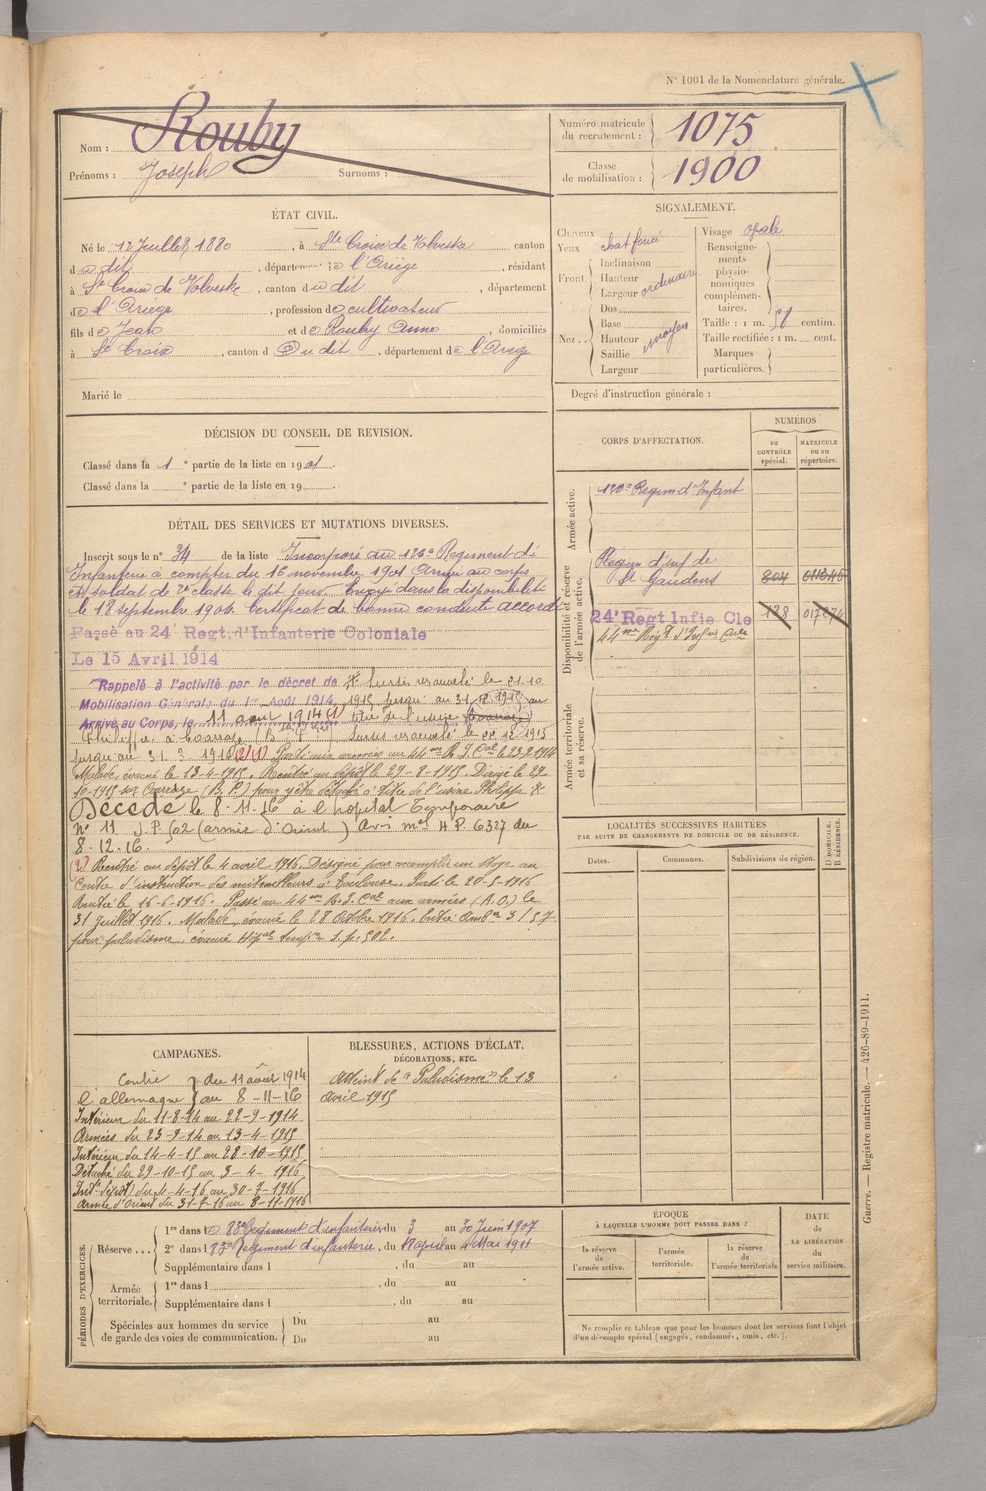 N° 1001 de la Nomenclature générale.
Nom : Rouby
Prénoms : Joseph Surnoms :
Numéro matricule du recrutement : 1075
Classe de mobilisation : 1900
ÉTAT CIVIL.
Né le 12 Juillet 1880, à Ste Croix de Volvestre canton
du dit, département de l'Ariège, résidant
à Ste Croix de Volvestre, canton du dit, département
de l'Ariège, profession de cultivateur
fils de Jean et de Rouby Anne, domiciliés
à Ste Croix, canton du dit, département de l'Ariège
Marié le
SIGNALEMENT.
Cheveux
Yeux chat foncé
Front
Inclinaison
Hauteur
Largeur
ordinaire
Nez
Dos
Base
Hauteur
Saillie
Largeur
moyen
Visage ovale
Renseignements physionomiques complémentaires.
Taille : 1 m. centim.
Taille rectifiée : 1 m. cent.
Marques particulières.
Degré d'instruction générale :
DÉCISION DU CONSEIL DE REVISION.
Classé dans la 1e partie de la liste en 1901.
Classé dans la e partie de la liste en 19 .
CORPS D'AFFECTATION.
NUMÉROS
au CONTRÔLE spécial.
MATRICULE ou au répertoire.
Armée active.
Regim d'Infant
Disponibilité et réserve de l'armée active.
Regim d'inf de
St Gaudens 804
24e Regt Infie Cle 128
44me Rég t d'Inf ie Cale
Armée territoriale et sa réserve.
DÉTAIL DES SERVICES ET MUTATIONS DIVERSES.
Inscrit sous le n° 34 de la liste Incorporé au 126e Regiment d'
Infanterie à compter du 16 novembre 1901 Arrivé au corps
et soldat de 2e classe le dit jour. Envoyé dans la disponibilité
le 18 septembre 1904. Certificat de bonne conduite accordé
Passé au 24e Regt. d'Infanterie Coloniale
Le 15 Avril 1914
Rappelé à l'activité par le décret de
Mobilisation Générale du 1er Août 1914
Arrivé au Corps, le 11 aout 1914 (1)
Sursis renouvelé le 21.10.
1915 jusqu'au 31.12.1915 au
titre de l'usine
Philippe à Coarraze Sursis renouvelé le 22.12.1915
jusqu'au 31. 3 1916 (2) (1) Parti aux armées au 44me R.I.Cal le 23.9.1914
Malade, évacué le 13-4-1915. Rentré au dépôt le 29-8-1915. Dirigé le 29-
10-1915 sur Coarraze (B.P.) pour y être détaché à titre de l'usine Philippe
Décédé le 8-11-16 à l'hopital Temporaire
N° 11 S.P. 502 (armée d'Orient) Avis mel H P. 6327 du
8-12-16.
(2) Rentré au dépôt le 4 avril 1916. Désigné pour accomplir un stage au
Centre d'instruction des mitrailleurs à Toulouse. Parti le 20-5-1916
Rentré le 16-6-1916. Passé au 44me R.I.Cal aux armées (A.O.) le
31 Juillet 1916. Malade, évacué le 28 Octobre 1916. Entré Ambce 3/57
pour paludisme, évacué Hôpal Tempre S.p. 502.
LOCALITÉS SUCCESSIVES HABITÉES
PAR SUITE DE CHANGEMENTS DE DOMICILE OU DE RÉSIDENCE.
Dates.
Communes.
Subdivisions de région.
D DOMICILE,
R RÉSIDENCE.
CAMPAGNES.
Contre l'allemagne } du 11 août 1914
au 8-11-16
Intérieur du 11-8-14 au 22-9-1914
Armées du 23-9-14 au 13-4-1915
Intérieur du 14-4-15 au 28-10-1915
Détaché du 29-10-15 au 3-4-1916
Intr (dépôt) du 4-4-16 au 30-7-1916
Armée d'Orient du 31-7-16 au 8-11-1916
BLESSURES, ACTIONS D'ÉCLAT,
DÉCORATIONS, ETC.
Atteint de « Paludisme » le 13
avril 1915
PÉRIODES D'EXERCICES.
Réserve...
1re dans le 83e Regiment d'infanterie du 3 au 30 Juin 1907
2e dans le 83e Regiment d'infanterie, du au 4 Mai 1911
Supplémentaire dans l , du au
Armée territoriale.
1re dans l , du au
Supplémentaire dans l , du au
Spéciales aux hommes du service de garde des voies de communication.
Du au
Du au
ÉPOQUE
À LAQUELLE L'HOMME DOIT PASSER DANS :
la réserve de l'armée active.
l'armée territoriale.
la réserve de l'armée territoriale
DATE de LA LIBÉRATION du service militaire.
Ne remplir ce tableau que pour les hommes dont les services font l'objet
d'un décompte spécial (engagés, condamnés, omis, etc.).
Guerre. — Registre matricule. — 426-89-1911.